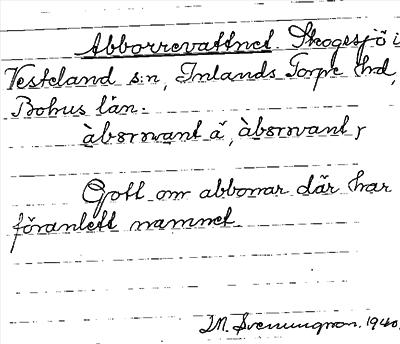 Abborrevattnet. Skogssjö i
Västerland s:n, Inlands Torpe hd,
Bohus län.
àbårvant ä, àbårvant,
Gott om abborrar där har
föranlett namnet.
M. Svenungson. 1940.